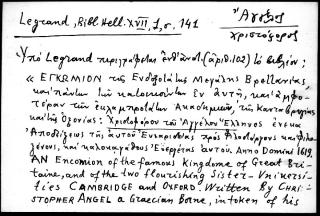 Legrand, Bibl. Hell. XVII, 1, σ. 141
Ἄγγελος
Χριστόφορος
Ὑπὸ Legrand περιγράφεται ἐνθ' ἀνωτ. (ἀριθ. 102) τὸ βιβλίον:
« ΕΓΚΩΜΙΟΝ τῆς Ἐνδοξοτάτης Μεγάλης Βρεττανίας
καὶ πάντων τῶν κατοικούντων ἐν αὐτῇ, καὶ ἀμφο-
τέρων τῶν Ἀκαδημιῶν, τῆς Κανταβριγίας
καὶ τῆς Ὀξονίας: Χριστοφόρου τοῦ Ἀγγέλου Ἕλληνος ἕνεκα
Ἀποδείξεως τῆς αὐτοῦ Εὐχαριστίας πρὸς Φιλοστόργους καὶ Φιλο-
ξένους, καὶ καλοκἀγάθους Εὐεργέτας αὐτοῦ. Anno Domini 1619.
AN Encomion of the famous Kingdome of Great Bri-
taine, and of the two flourishing Sister-Vniversi-
ties CAMBRIDGE and OXFORD. Written By CHRI-
STOPHER ANGEL a Graecian Borne, in token of his